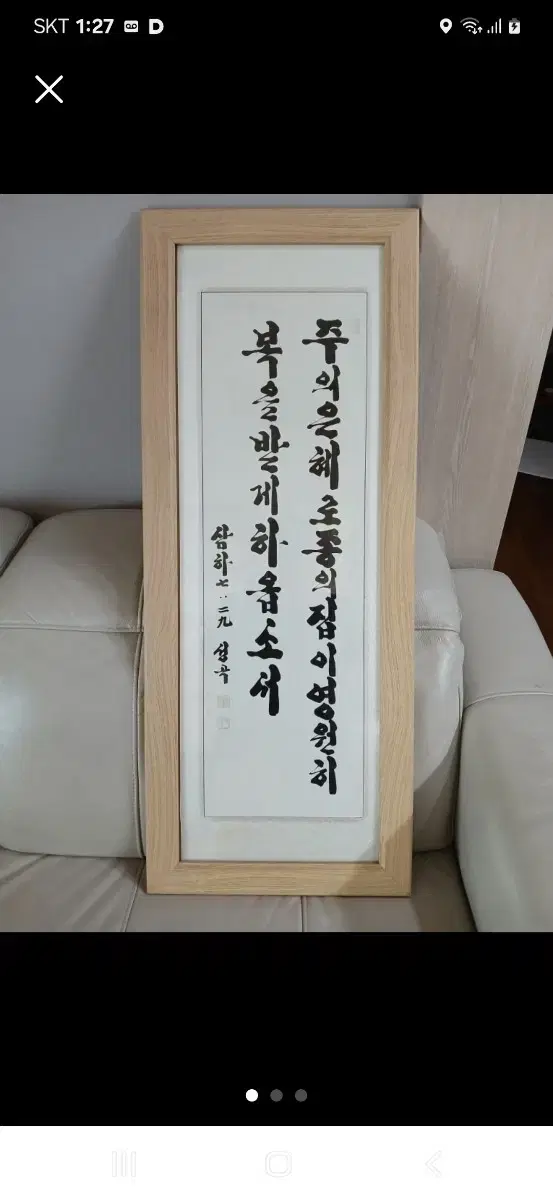 SKT 1:27
주의은혜로종의집이영원히
복을받게하옵소서
삼하七:二九 성곡